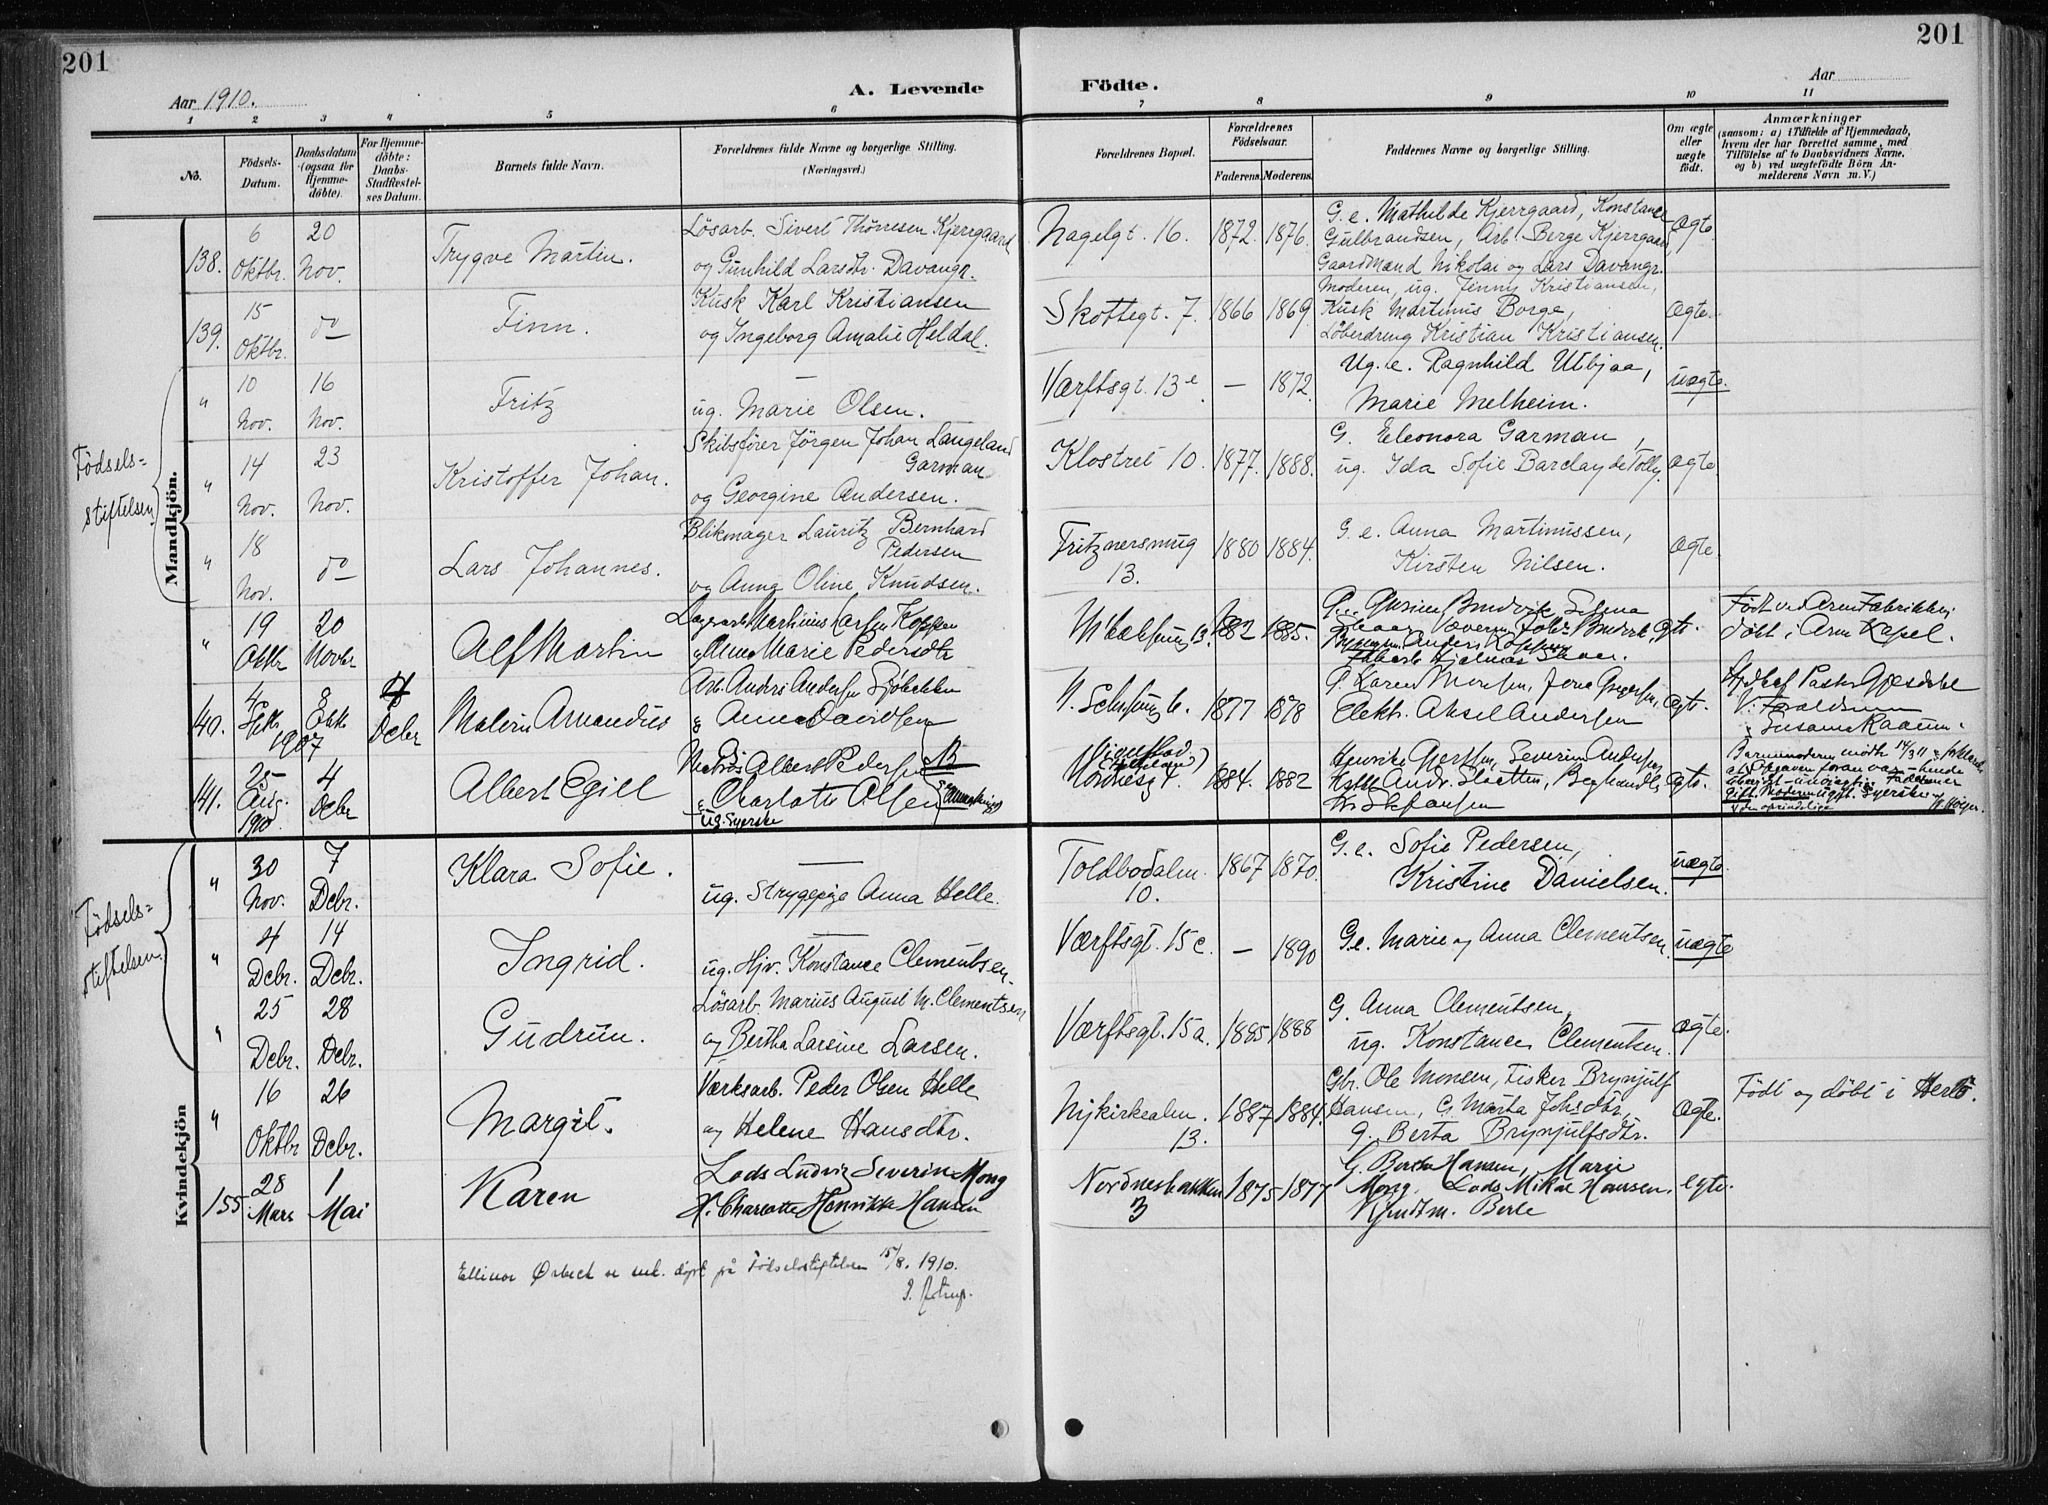 201
201
Aar 1910.
A. Levende
Födte.
Aar
1 2 3 4 5 6 7 8 9 10 11
No.
Födsels-Datum.
Daabsdatum (ogsaa for Hjemme-döbte).
For Hjemme-döbte: Daabs-Stadfæstel-ses Datum.
Barnets fulde Navn.
Forældrenes fulde Navne og borgerlige Stilling. (Næringsvei.)
Forældrenes Bopæl.
Forældrenes Födselsaar.
Faderens. Moderens.
Faddernes Navne og borgerlige Stilling.
Om ægte eller uægte födt.
Anmærkninger
(saasom: a) i Tilfælde af Hjemmedaab, hvem der har forrettet samme, med Tilföielse af to Daabsvidners Navne, og b) ved uægtefödte Börn An-melderens Navn m. V.)
Mandkjön.
Födsels-
stiftelsen
138. 6 Oktbr. 20 Nov. Trygve Martin.
Lösarb. Sivert Thönesen Kjerrgaard
og Gunhild Larsdtr. Davangr.
Nagelgt. 16. 1872. 1876.
G. e. Mathilde Kjerrgaard, Konstance
Gulbrandsen, Arb. Berge Kjerrgaard,
Gaardmand Nikolai og Lars Davangr.
Ægte.
139. 15 Oktbr. do Finn.
Kusk Karl Kristiansen
og Ingeborg Amalie Heldal.
Skottegt. 7. 1866 1869.
Moderen, ug. Jenny Kristiansen,
Kusk Martinus Borge,
Løberdreng Kristian Kristiansen.
Ægte.
" 10 Nov. 16 Nov. Fritz
ug. Marie Olsen.
Værftsgt. 13e — 1872.
Ug. e. Ragnhild Utbjaa,
Marie Melheim.
uægte.
" 14 Nov. 23 Nov. Kristoffer Johan.
Skibsförer Jörgen Johan Langeland
Garman
og Georgine Andersen.
Klostret 10. 1877. 1888.
G. Eleonora Garman,
ug. Ida Sofie Barclay de Tolly.
Ægte.
" 18 Nov. do Lars Johannes.
Blikmager Lauritz Bernhard
Pedersen
og Anna Oline Knudsen.
Fritznersmug 13. 1880 1884.
G. e. Anna Martinussen,
Kirsten Nilsen.
Ægte.
" 19 Oktbr 20 Novbr Alf Martin
Martinius Larsen Koppen
Anna Marie Pedersdtr
13. 1882 1885.
Anders Koppen
Hjalmar Skaar.
Ægte.
Født ved Arne Fabrikker,
døbt i Arne Kapel.
140. 4 1907 8 4 Decbr Malvin Amandus
Arb. Anders Andersen
& Anna Davidsen
6. 1877 1878
Karen Monsen,
Elektr. Aksel Andersen
Ægte.
Hjdbt af Pastor Gjesdahl
141. 25 Aug. 1910. 4 Decbr Albert Egill
Albert Pedersen
& Charlotte Olsen
ug. Syerske
Nordnesgt 1884. 1882
Severin Andersen,
Ægte.
Barnemoderen mødte 14/3 11
Kvindekjön
Födsels-
stiftelsen.
" 30 Nov. 7 Decbr. Klara Sofie.
ug. Strygepige Anna Helle.
Toldbodalm. 10. 1867 1870.
G. e. Sofie Pedersen,
Kristine Danielsen.
uægte
" 4 Decbr. 14 Decbr. Ingrid.
ug. Hjv. Konstance Clementsen.
Værftsgt. 15 c. — 1890
G. e. Marie og Anna Clementsen.
uægte
" 25 Decbr. 28 Decbr. Gudrun.
Lösarb. Marius August M. Clementsen
og Bertha Larsine Larsen.
Værftsgt. 15 a. 1885 1888
G. Anna Clementsen,
ug. Konstance Clementsen.
Ægte.
" 16 Oktbr 26 Decbr. Margit.
Værksarb. Peder Olsen Helle
og Helene Hansdtr.
Nykirkealm. 13. 1887 1884.
Gbr. Ole Monsen, Fisker Brynjulf
Hansen, G. Marta Johsdtr,
g. Berta Brynjulfsdtr.
Ægte.
Födt og döbt i Herlö.
155 28 Mars 1 Mai Karen
Lods Ludvig Severin Mong
H. Charlotte Henrikke Hansen
Nordnesbakken 3 1875 1877
G. Berthe Hansen, Marie
Mong, Lods Mikal Hansen,
Berle
Ægte.
Ellinor Ørbeck er døpt på Fødselsstiftelsen 15/8. 1910.